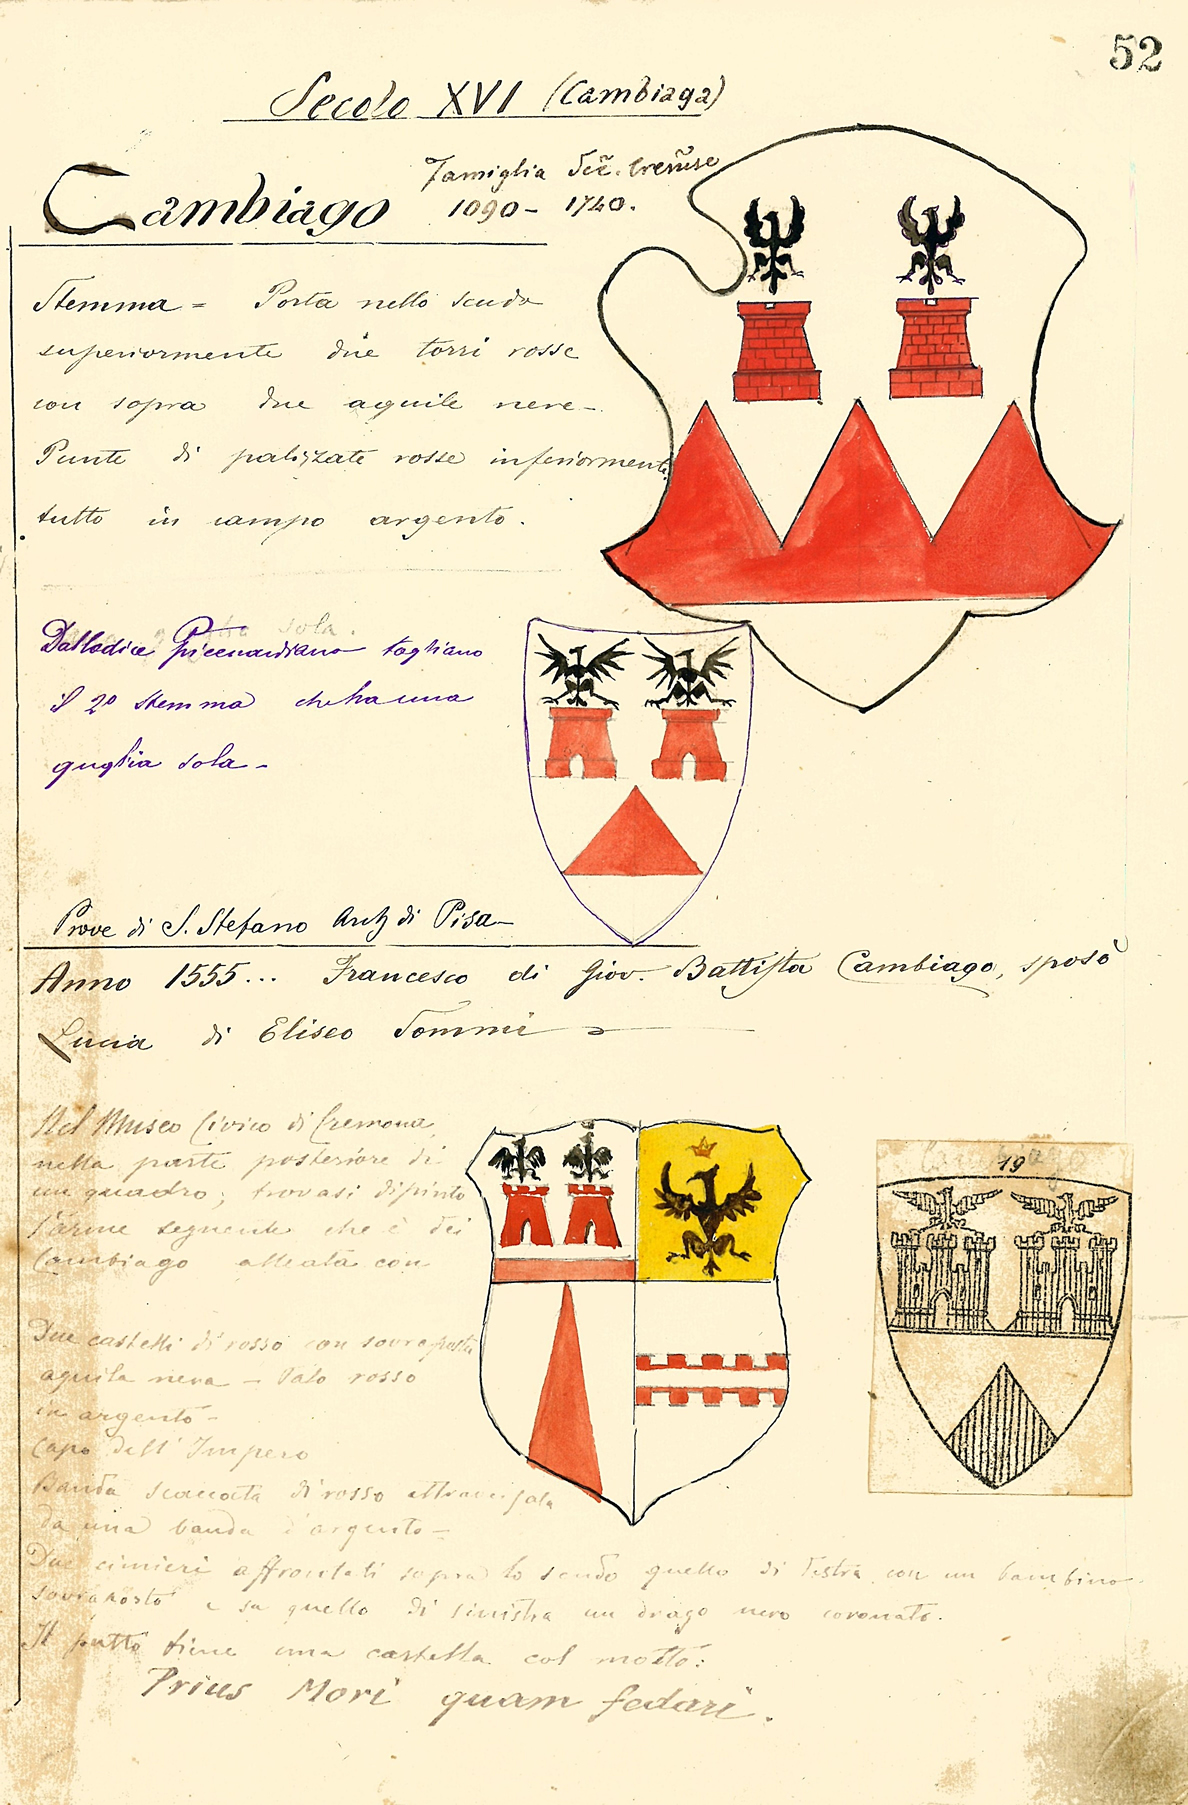 52
Secolo XVI (Cambiaga)
Cambiago
Famiglia
1090 - 1740.
Stemma = Porta nello scudo
superiormente due torri rosse
con sopra due aquile nere -.
Punte di palizzate rosse inferiormente
tutto in campo argento.
guglia sola.
Dal Codice Piccenardiano togliamo
il 2º stemma che ha una
guglia sola -
Prove di S. Stefano Arch di Pisa -
Anno 1555... Francesco di Giov. Battista Cambiago, sposò
Lucia di Eliseo Tommi
Nel Museo Civico di Cremona,
nella parte posteriore di
un quadro; trovasi dipinto
l'arme seguente che è dei
Cambiago alleata con
Cambiago
19
Due castelli di rosso con sovrapposta
aquila nera - Palo rosso
in argento -
Capo dell'Impero
Banda scaccata di rosso attraversata
da una banda d'argento -
Due cimieri affrontati sopra lo scudo quello di destra con un bambino
sovraposto e su quello di sinistra un drago nero coronato.
Il putto tiene una cartella col motto:
Prius Mori quam fedari.